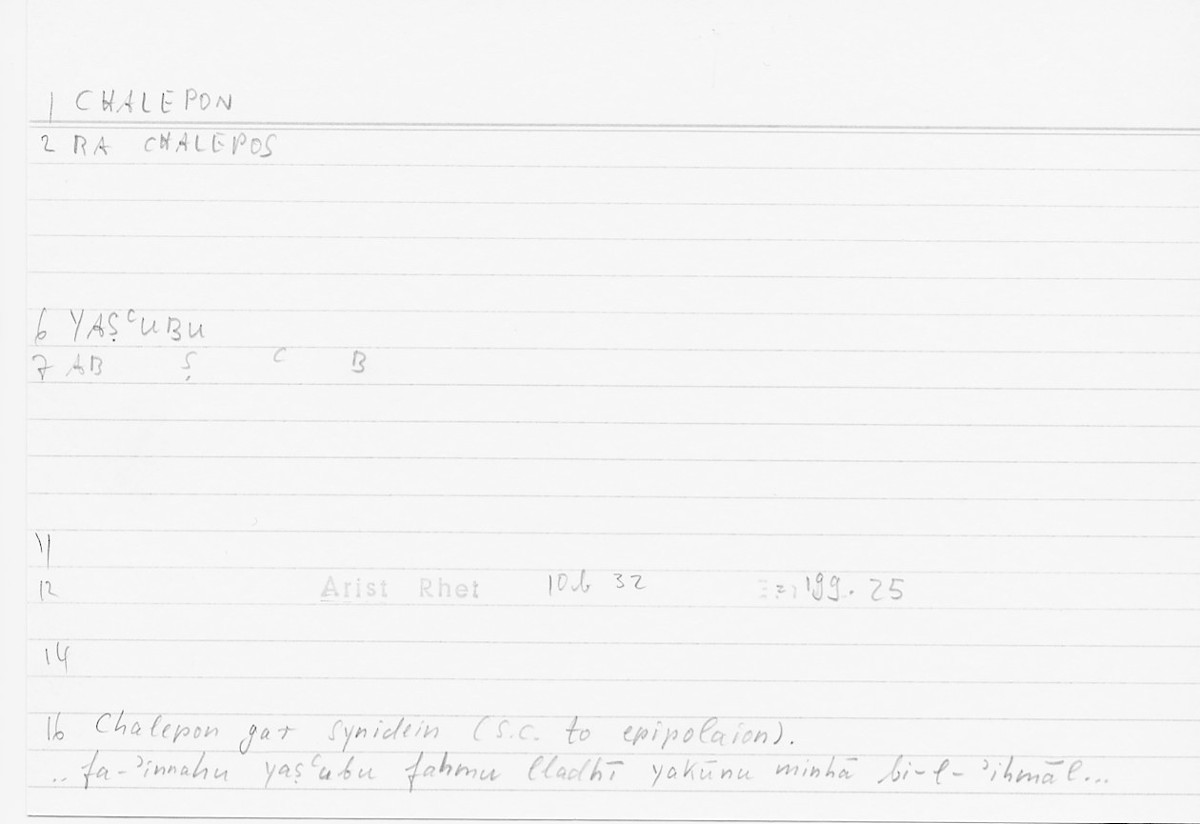 1 CHALEPON
2 RA CHALEPOS
6 YAṢʿUBU
7 AB Ṣ ʿ B
11
12 Arist Rhet 10b 32 199.25
14
16 Chalepon gar synidein (s.c. to epipolaion).
.. fa-ʾinnahu yaṣʿubu fahmu lladhī yakūnu minhā bi-l-ʾihmāl...